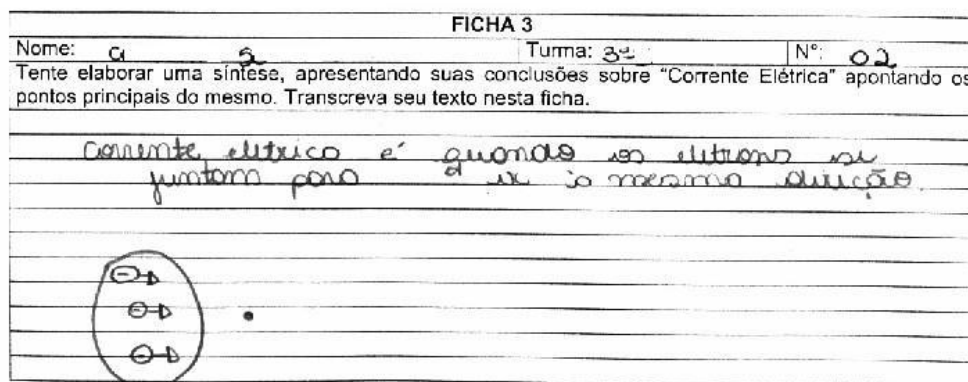 FICHA 3
Nome: a s Turma: 3ª Nº: 02
Tente elaborar uma síntese, apresentando suas conclusões sobre “Corrente Elétrica” apontando os
pontos principais do mesmo. Transcreva seu texto nesta ficha.
Corrente elétrico é quando os elétrons se
juntam para ir a mesma direção.